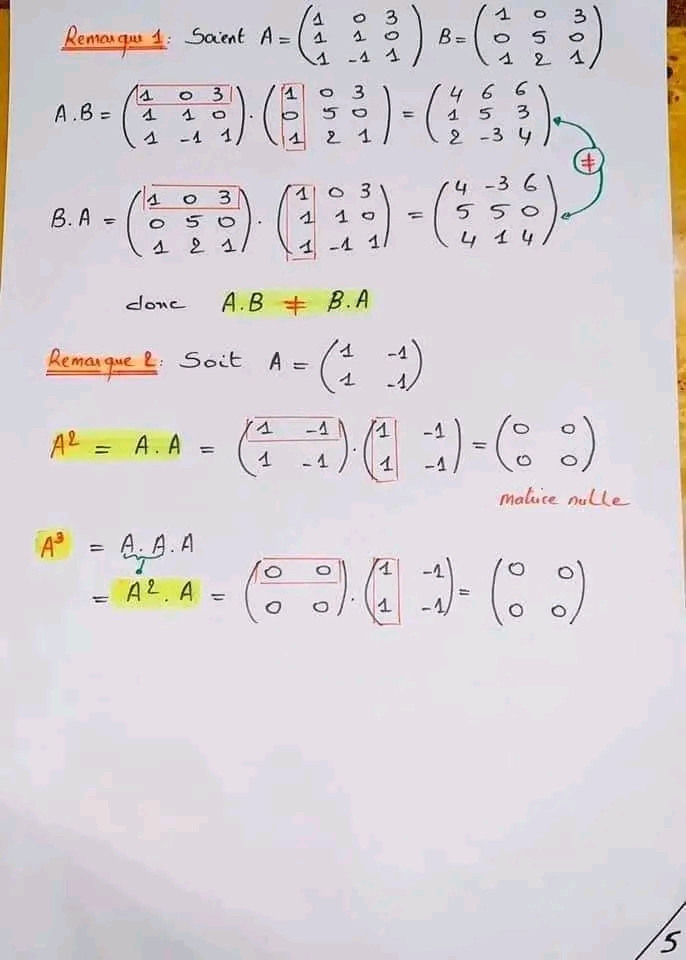 Remarque 1: Soient A = (1 0 3 / 1 1 0 / 1 -1 1) B = (1 0 3 / 0 5 0 / 1 2 1)
A.B = (1 0 3 / 1 1 0 / 1 -1 1) . (1 0 3 / 0 5 0 / 1 2 1) = (4 6 6 / 1 5 3 / 2 -3 4)
≠
B.A = (1 0 3 / 0 5 0 / 1 2 1) . (1 0 3 / 1 1 0 / 1 -1 1) = (4 -3 6 / 5 5 0 / 4 1 4)
donc A.B ≠ B.A
Remarque 2: Soit A = (1 -1 / 1 -1)
A² = A.A = (1 -1 / 1 -1) . (1 -1 / 1 -1) = (0 0 / 0 0)
matrice nulle
A³ = A.A.A
= A².A = (0 0 / 0 0) . (1 -1 / 1 -1) = (0 0 / 0 0)
5